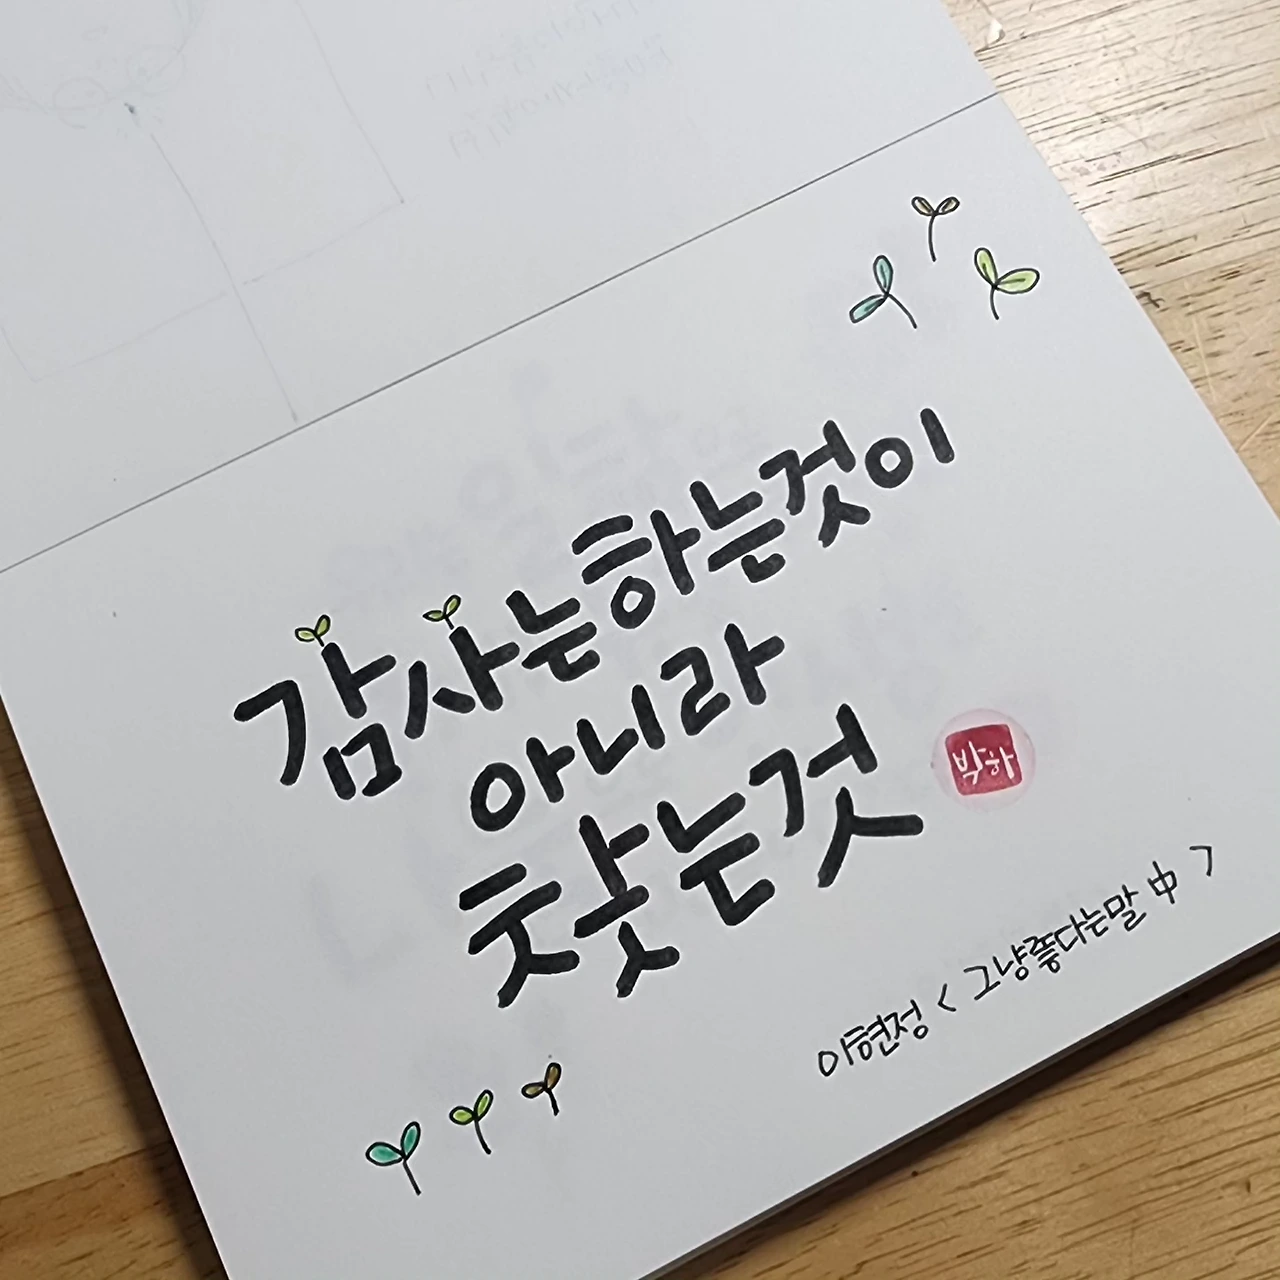 감사는하는것이
아니라
찾는것
박하
이현정 < 그냥좋다는말 中 >